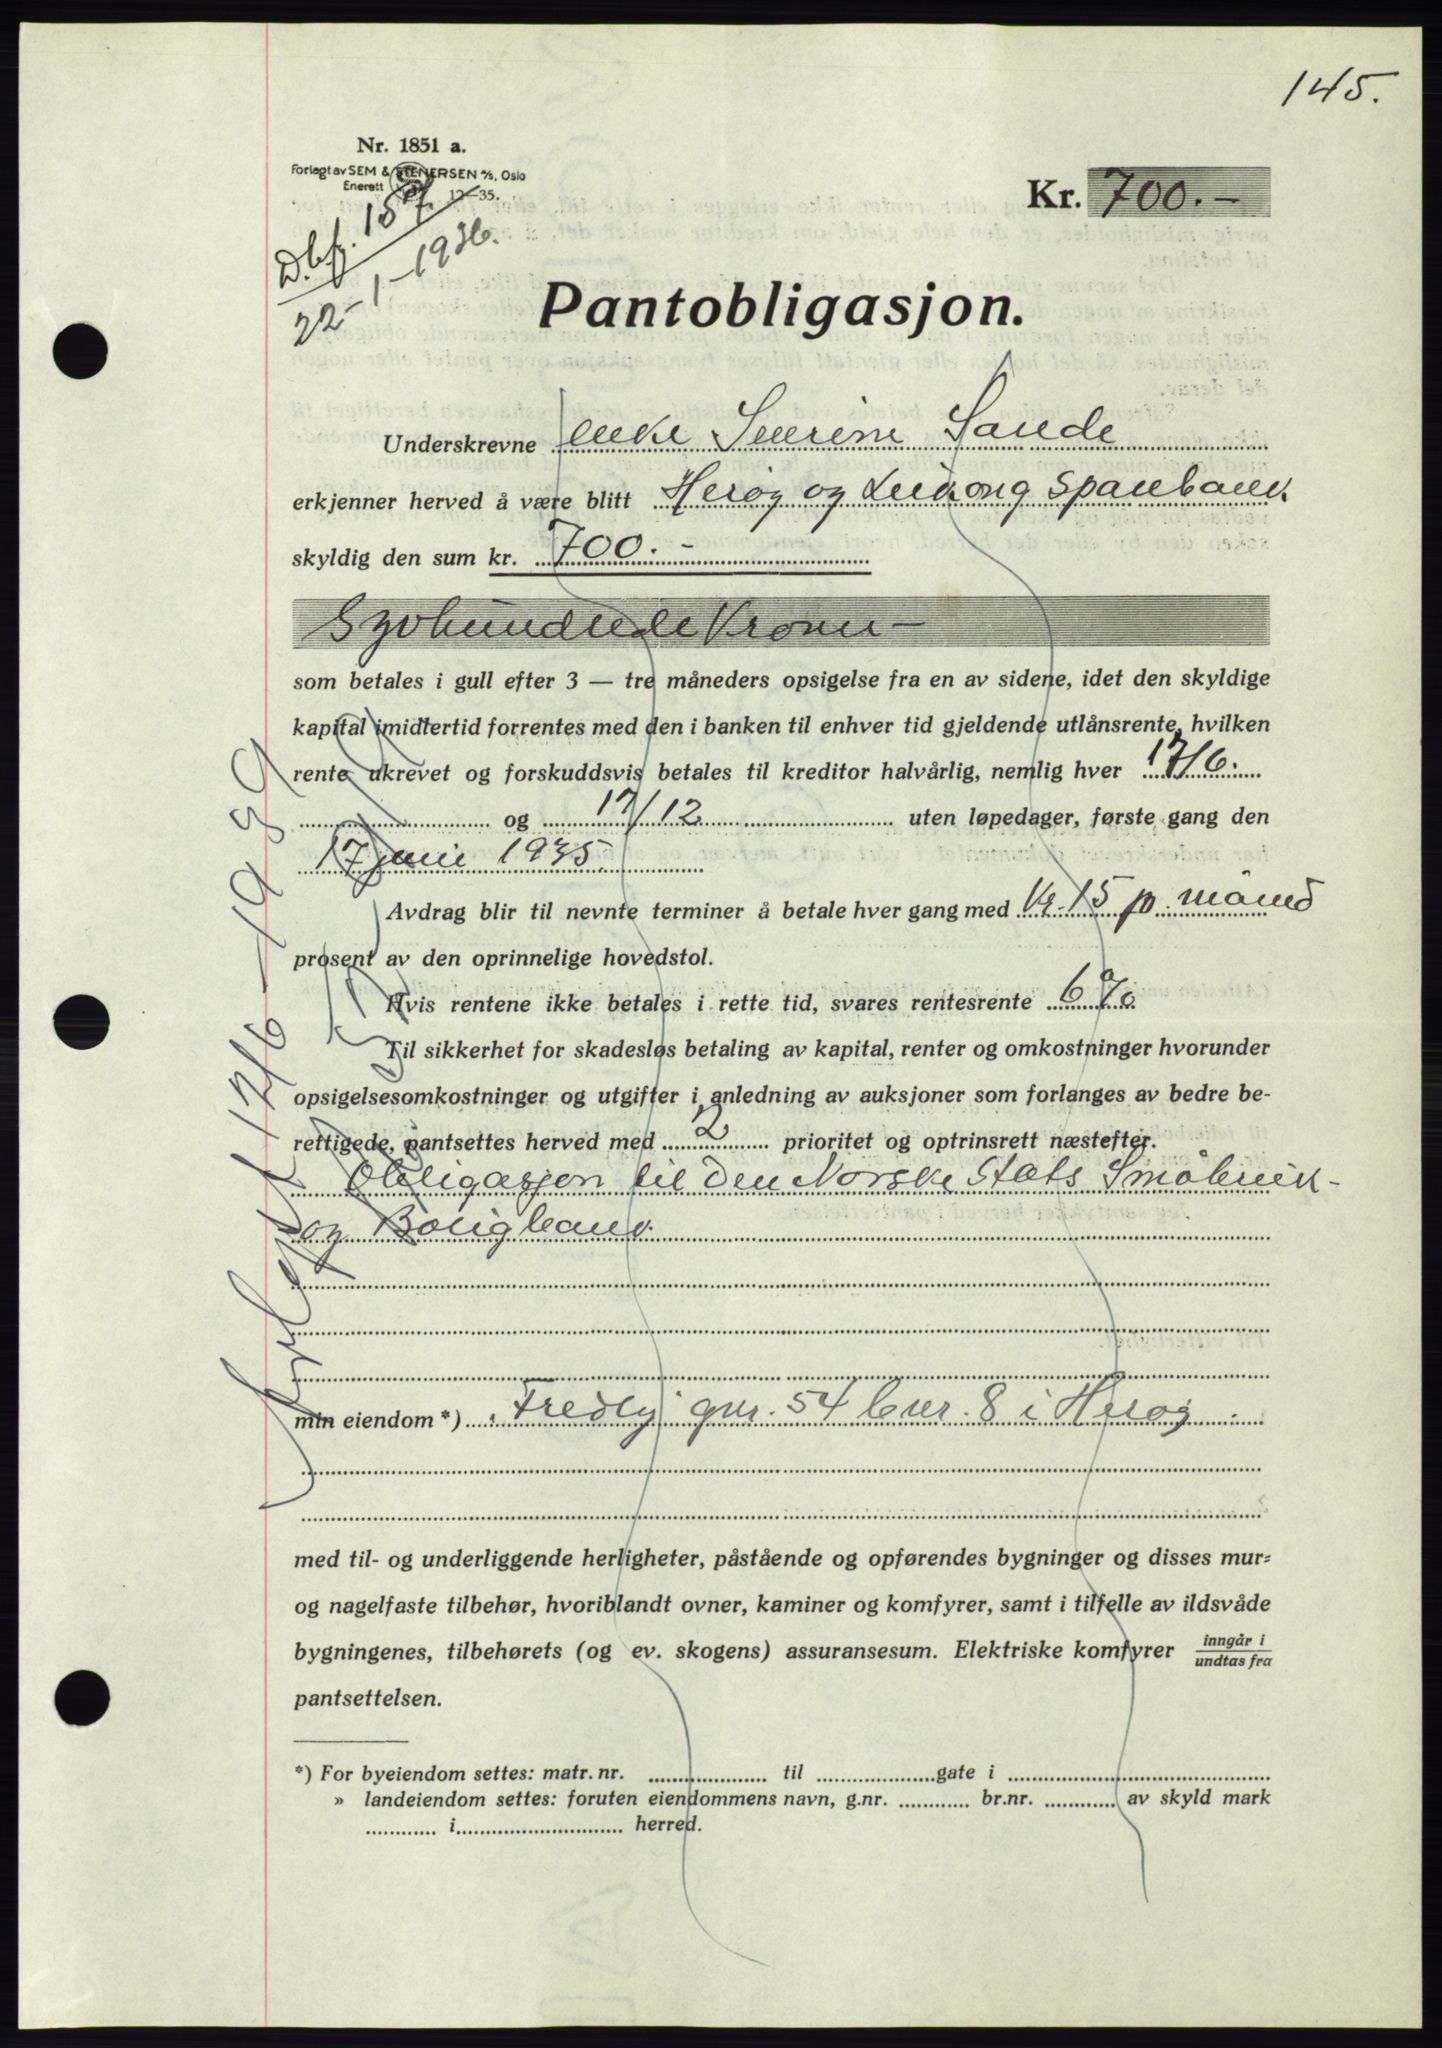 145.
Nr. 1851 a.
Forlagt av SEM & STENERSEN A/S, Oslo
Enerett 12-35.
Kr. 700.-
D.bf. 157
22-1-1936.
Pantobligasjon.
Underskrevne enke Severine Sande
erkjenner herved å være blitt Herøy og Leikong Sparebank
skyldig den sum kr. 700.-
Syvhundrede Kroner -
som betales i gull efter 3 — tre måneders opsigelse fra en av sidene, idet den skyldige
kapital imidtertid forrentes med den i banken til enhver tid gjeldende utlånsrente, hvilken
rente ukrevet og forskuddsvis betales til kreditor halvårlig, nemlig hver 17/6.
og 17/12 uten løpedager, første gang den
17 juni 1935
Avdrag blir til nevnte terminer å betale hver gang med Kr. 15 p. måned
prosent av den oprinnelige hovedstol.
Hvis rentene ikke betales i rette tid, svares rentesrente 6 %
Til sikkerhet for skadesløs betaling av kapital, renter og omkostninger hvorunder
opsigelsesomkostninger og utgifter i anledning av auksjoner som forlanges av bedre be-
rettigede, pantsettes herved med 2 prioritet og optrinsrett næstefter.
Obligasjon til Den Norske Stats Småbruk-
og Boligbank
min eiendom *) "Fredly" gnr. 54 bnr. 8 i Herøy.
med til- og underliggende herligheter, påstående og opførendes bygninger og disses mur-
og nagelfaste tilbehør, hvoriblandt ovner, kaminer og komfyrer, samt i tilfelle av ildsvåde
bygningenes, tilbehørets (og ev. skogens) assuransesum. Elektriske komfyrer inngår i / undtas fra
pantsettelsen.
*) For byeiendom settes: matr. nr. til gate i
» landeiendom settes: foruten eiendommens navn, g.nr. br.nr. av skyld mark
i herred.
17/6-1939